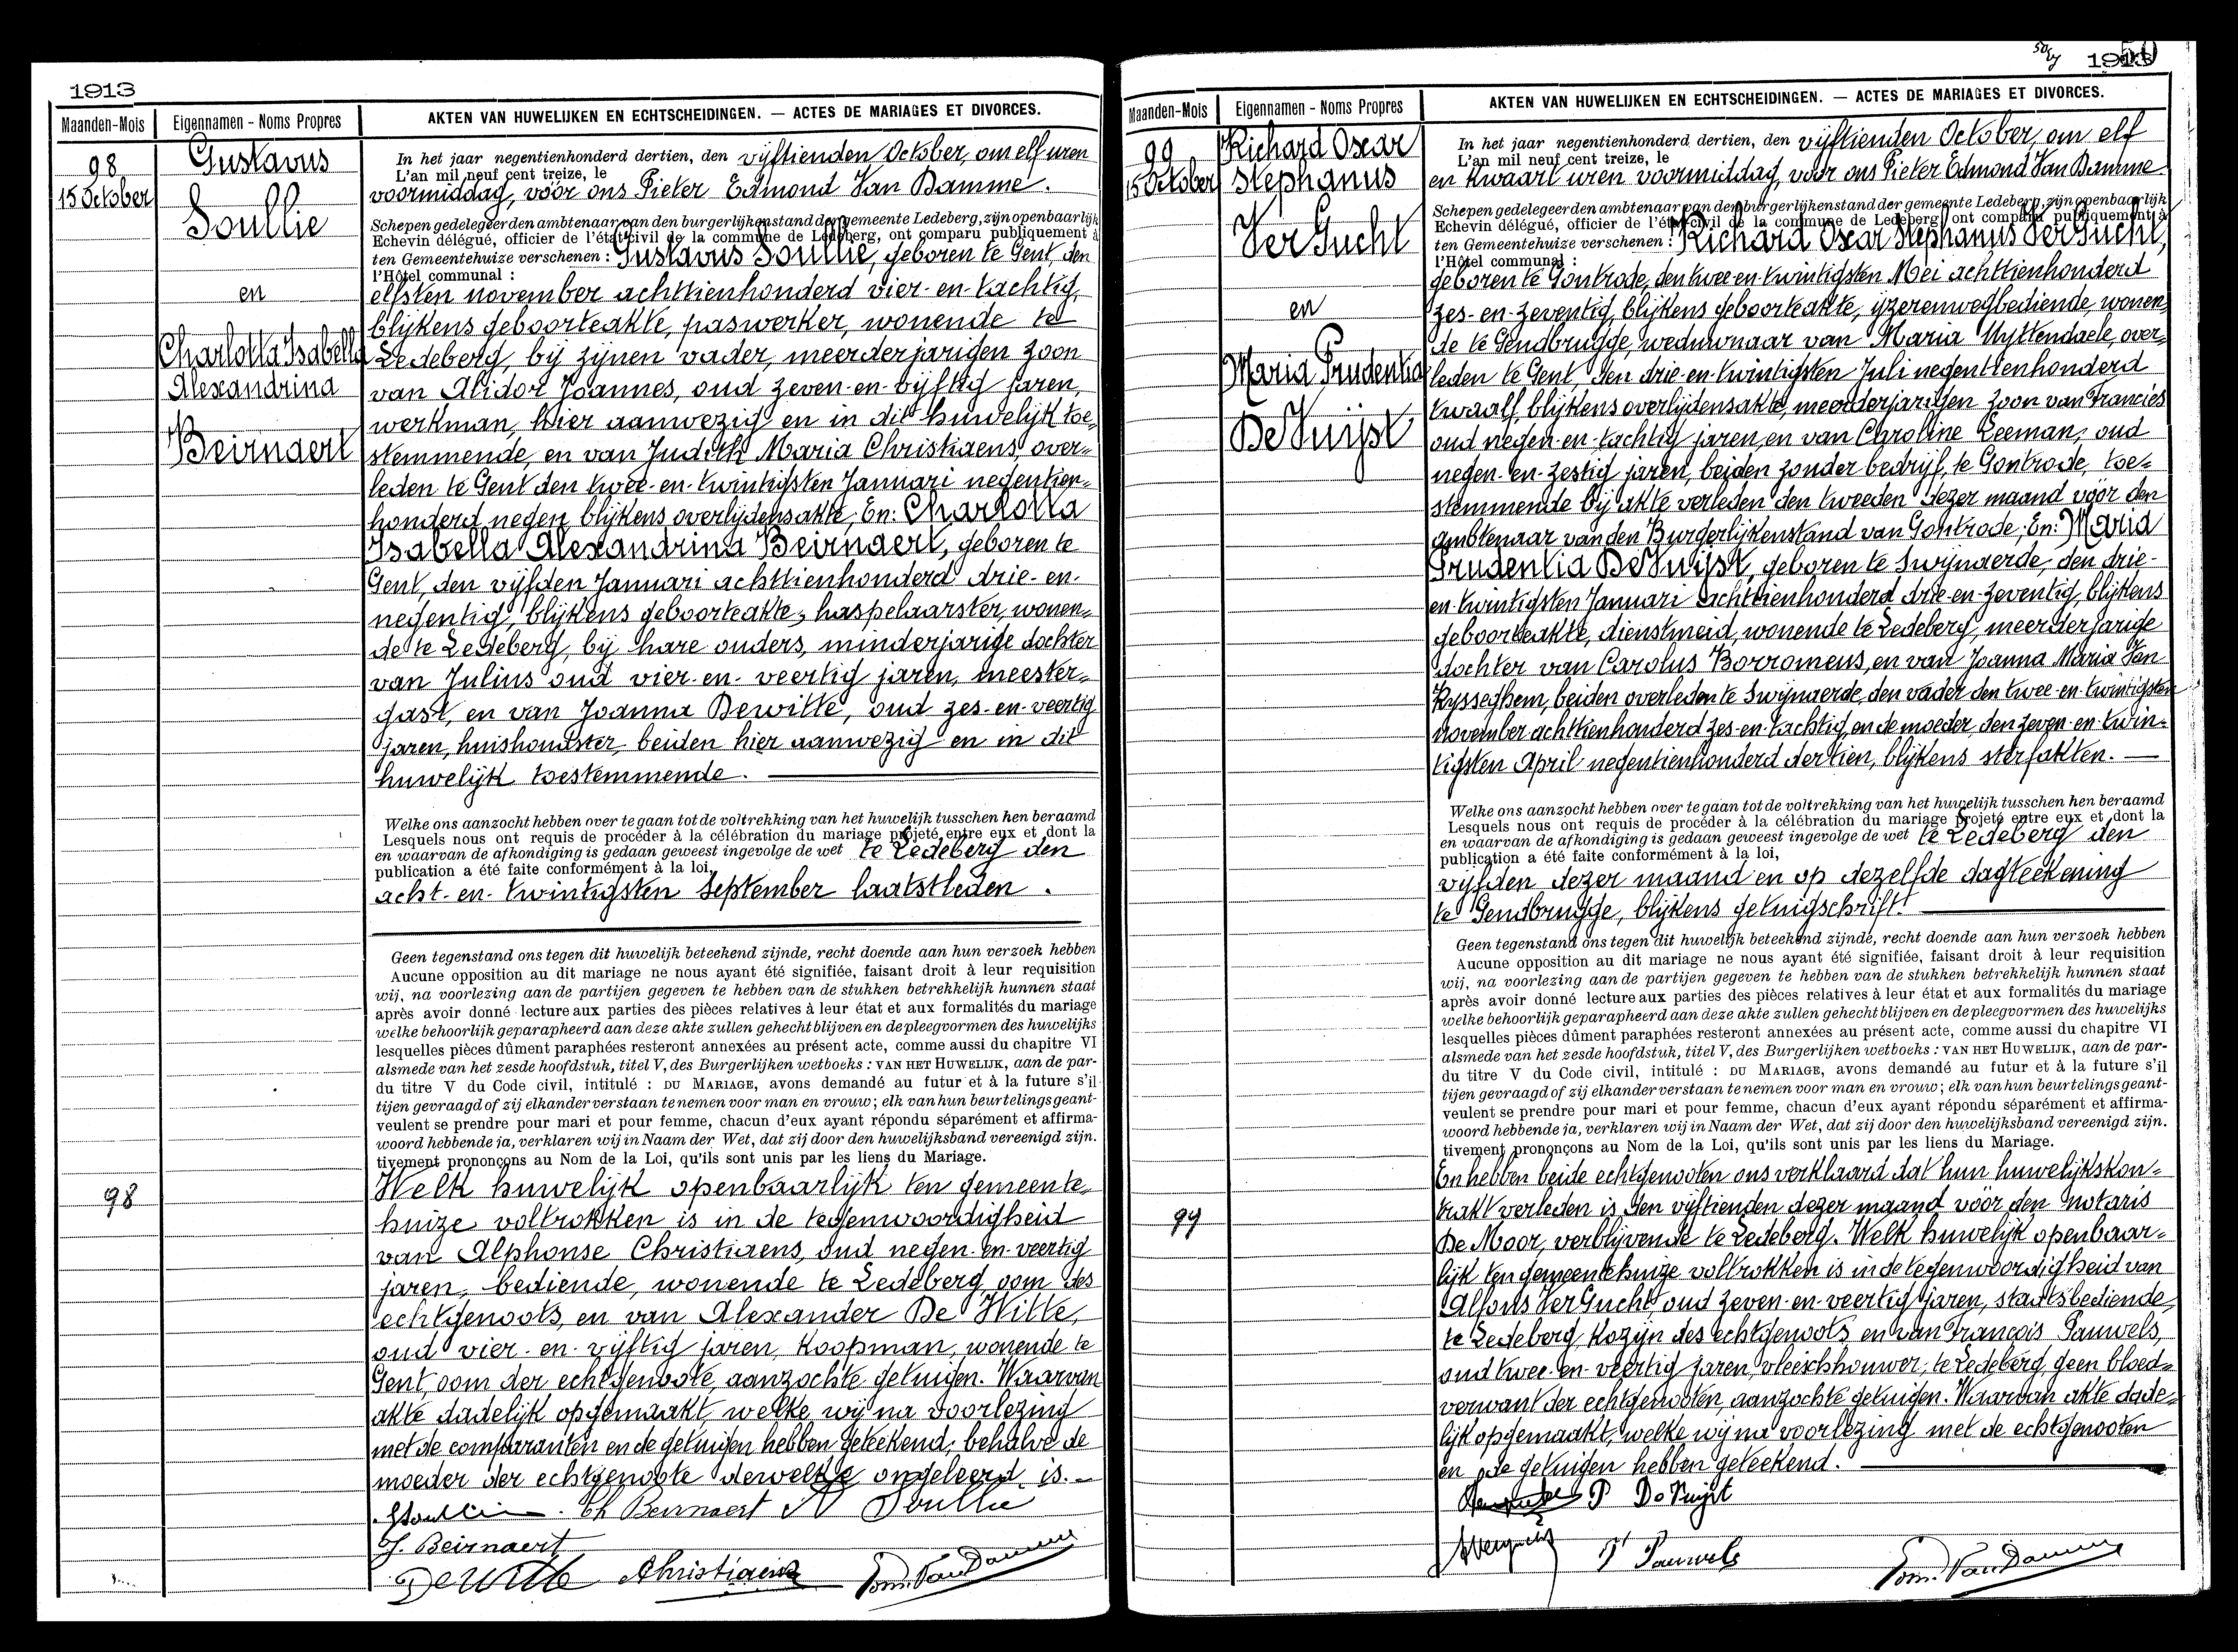 1913
Maanden-Mois
Eigennamen - Noms Propres
AKTEN VAN HUWELIJKEN EN ECHTSCHEIDINGEN. — ACTES DE MARIAGES ET DIVORCES.
98
15 October
Gustavus
Soullie
en
Charlotta Isabella
Alexandrina
Beirnaert
In het jaar negentienhonderd dertien, den vijftienden October, om elf uren
L'an mil neuf cent treize, le
voormiddag, vóór ons Pieter Edmond Van Damme.
Schepen gedelegeerden ambtenaar van den burgerlijken stand der gemeente Ledeberg, zijn openbaarlijk
Echevin délégué, officier de l'état civil de la commune de Ledeberg, ont comparu publiquement à
ten Gemeentehuize verschenen : Gustavus Soullie, geboren te Gent, den
l'Hôtel communal :
elfsten november achttienhonderd vier-en-tachtig,
blijkens geboorteakte, paswerker, wonende te
Ledeberg, bij zijnen vader, meerderjarigen zoon
van Alidor Joannes, oud zeven-en-vijftig jaren,
werkman, hier aanwezig en in dit huwelijk toe-
stemmende, en van Judith Maria Christiaens, over-
leden te Gent den twee-en-twintigsten Januari negentien-
honderd negen, blijkens overlijdensakte; En: Charlotta
Isabella Alexandrina Beirnaert, geboren te
Gent, den vijfden Januari achttienhonderd drie-en-
negentig, blijkens geboorteakte, haspelaarster, wonen-
de te Ledeberg, bij hare ouders, minderjarige dochter
van Julius oud vier-en-veertig jaren, meester-
gast, en van Joanna Dewitte, oud zes-en-veertig
jaren, huishoudster, beiden hier aanwezig en in dit
huwelijk toestemmende.
Welke ons aanzocht hebben over te gaan tot de voltrekking van het huwelijk tusschen hen beraamd
Lesquels nous ont requis de procéder à la célébration du mariage projeté entre eux et dont la
en waarvan de afkondiging is gedaan geweest ingevolge de wet te Ledeberg den
publication a été faite conformément à la loi,
acht-en-twintigsten September laatstleden.
Geen tegenstand ons tegen dit huwelijk beteekend zijnde, recht doende aan hun verzoek hebben
Aucune opposition au dit mariage ne nous ayant été signifiée, faisant droit à leur requisition
wij, na voorlezing aan de partijen gegeven te hebben van de stukken betrekkelijk hunnen staat
après avoir donné lecture aux parties des pièces relatives à leur état et aux formalités du mariage
welke behoorlijk geparapheerd aan deze akte zullen gehecht blijven en de pleegvormen des huwelijks
lesquelles pièces dûment paraphées resteront annexées au présent acte, comme aussi du chapitre VI
alsmede van het zesde hoofdstuk, titel V, des Burgerlijken wetboeks : VAN HET HUWELIJK, aan de par-
du titre V du Code civil, intitulé : DU MARIAGE, avons demandé au futur et à la future s'il
tijen gevraagd of zij elkander verstaan te nemen voor man en vrouw ; elk van hun beurtelings geant-
veulent se prendre pour mari et pour femme, chacun d'eux ayant répondu séparément et affirma-
woord hebbende ja, verklaren wij in Naam der Wet, dat zij door den huwelijksband vereenigd zijn.
tivement prononçons au Nom de la Loi, qu'ils sont unis par les liens du Mariage.
98
Welk huwelijk openbaarlijk ten gemeente-
huize voltrokken is in de tegenwoordigheid
van Alphonse Christiaens, oud negen-en-veertig
jaren, bediende, wonende te Ledeberg, oom des
echtgenoots, en van Alexander De Witte,
oud vier-en-vijftig jaren, koopman, wonende te
Gent, oom der echtgenoote, aanzochte getuigen. Waarvan
akte dadelijk opgemaakt, welke wij na voorlezing
met de comparanten en de getuigen hebben geteekend, behalve de
moeder der echtgenoote dewelke ongeleerd is.
Ch Beirnaert A Soullie
J. Beirnaert
De Witte AChristiaens Edm. Van Damme
50
1913
Maanden-Mois
Eigennamen - Noms Propres
AKTEN VAN HUWELIJKEN EN ECHTSCHEIDINGEN. — ACTES DE MARIAGES ET DIVORCES.
99
15 October
Richard Oscar
Stephanus
Ver Gucht
en
Maria Prudentia
De Vuijst
In het jaar negentienhonderd dertien, den vijftienden October, om elf
L'an mil neuf cent treize, le
en kwaart uren voormiddag, vóór ons Pieter Edmond Van Damme
Schepen gedelegeerden ambtenaar van den burgerlijken stand der gemeente Ledeberg, zijn openbaarlijk
Echevin délégué, officier de l'état civil de la commune de Ledeberg, ont comparu publiquement à
ten Gemeentehuize verschenen : Richard Oscar Stephanus Ver Gucht,
l'Hôtel communal :
geboren te Gontrode, den twee-en-twintigsten Mei achttienhonderd
zes-en-zeventig, blijkens geboorteakte, ijzerenwegbediende, wonen-
de te Gendbrugge, weduwnaar van Maria Uyttendaele, over-
leden te Gent, den drie-en-twintigsten Juli negentienhonderd
twaalf, blijkens overlijdensakte, meerderjarigen zoon van Francies
oud negen-en-tachtig jaren, en van Caroline Leeman, oud
negen-en-zestig jaren, beiden zonder bedrijf, te Gontrode, toe-
stemmende bij akte verleden den tweeden dezer maand vóór den
ambtenaar van den Burgerlijkenstand van Gontrode; En: Maria
Prudentia De Vuijst, geboren te Swijnaerde, den drie-
en-twintigsten Januari achttienhonderd drie-en-zeventig, blijkens
geboorteakte, dienstmeid, wonende te Ledeberg, meerderjarige
dochter van Carolus Borromeus, en van Joanna Maria Van
Rysseghem, beiden overleden te Swijnaerde, den vader den twee-en-twintigsten
november achttienhonderd zes-en-tachtig, en de moeder, den zeven-en-twin-
tigsten April negentienhonderd dertien, blijkens sterfakten.
Welke ons aanzocht hebben over te gaan tot de voltrekking van het huwelijk tusschen hen beraamd
Lesquels nous ont requis de procéder à la célébration du mariage projeté entre eux et dont la
en waarvan de afkondiging is gedaan geweest ingevolge de wet te Ledeberg den
publication a été faite conformément à la loi,
vijfden dezer maand en op dezelfde dagteekening
te Gendbrugge, blijkens getuigschrift.
Geen tegenstand ons tegen dit huwelijk beteekend zijnde, recht doende aan hun verzoek hebben
Aucune opposition au dit mariage ne nous ayant été signifiée, faisant droit à leur requisition
wij, na voorlezing aan de partijen gegeven te hebben van de stukken betrekkelijk hunnen staat
après avoir donné lecture aux parties des pièces relatives à leur état et aux formalités du mariage
welke behoorlijk geparapheerd aan deze akte zullen gehecht blijven en de pleegvormen des huwelijks
lesquelles pièces dûment paraphées resteront annexées au présent acte, comme aussi du chapitre VI
alsmede van het zesde hoofdstuk, titel V, des Burgerlijken wetboeks : VAN HET HUWELIJK, aan de par-
du titre V du Code civil, intitulé : DU MARIAGE, avons demandé au futur et à la future s'il
tijen gevraagd of zij elkander verstaan te nemen voor man en vrouw ; elk van hun beurtelings geant-
veulent se prendre pour mari et pour femme, chacun d'eux ayant répondu séparément et affirma-
woord hebbende ja, verklaren wij in Naam der Wet, dat zij door den huwelijksband vereenigd zijn.
tivement prononçons au Nom de la Loi, qu'ils sont unis par les liens du Mariage.
99
En hebben beide echtgenooten ons verklaard dat hun huwelijkskon-
trakt verleden is den vijftienden dezer maand vóór den notaris
De Moor, verblijvende te Ledeberg. Welk huwelijk openbaar-
lijk ten gemeentehuize voltrokken is in de tegenwoordigheid van
Alfons Ver Gucht, oud zeven-en-veertig jaren, staatsbediende,
te Ledeberg, kozijn des echtgenoots, en van François Pauwels,
oud twee-en-veertig jaren, vleeschhouwer, te Ledeberg, geen bloed-
verwant der echtgenooten, aanzochte getuigen. Waarvan akte dade-
lijk opgemaakt, welke wij na voorlezing met de echtgenooten
en de getuigen hebben geteekend.
P De Vuijst
Fr Pauwels Edm. Van Damme